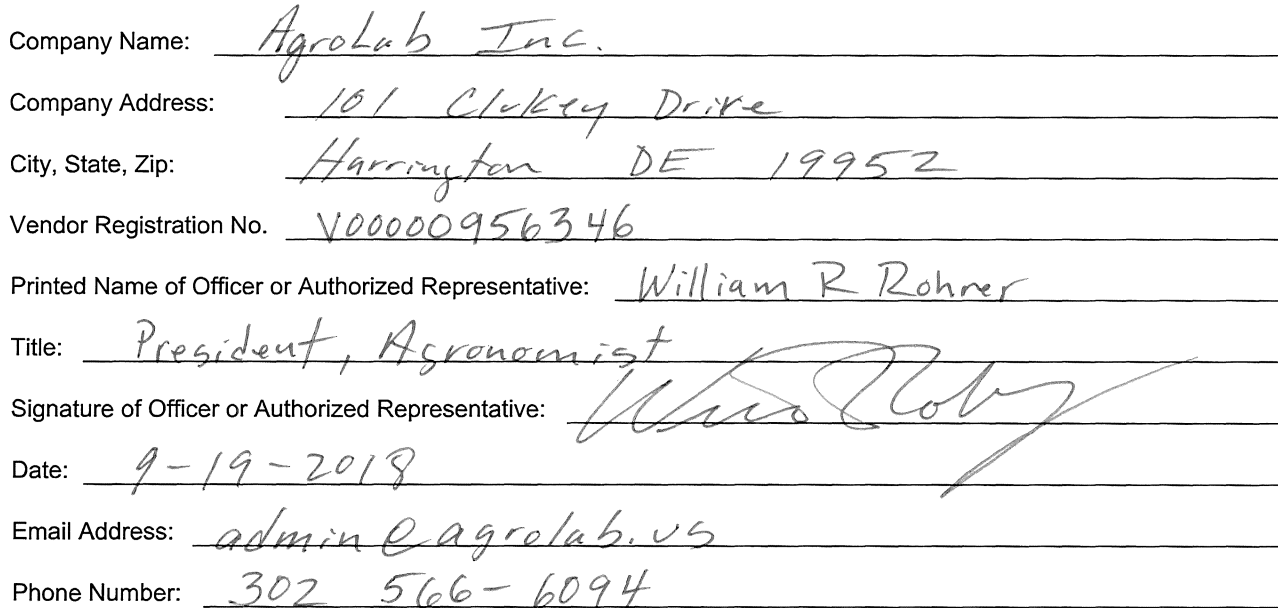 Company Name: AgroLab Inc.
Company Address: 101 Clukey Drive
City, State, Zip: Harrington DE 19952
Vendor Registration No. V00000956346
Printed Name of Officer or Authorized Representative: William R Rohrer
Title: President, Agronomist
Signature of Officer or Authorized Representative:
Date: 9-19-2018
Email Address: admin@agrolab.us
Phone Number: 302 566-6094